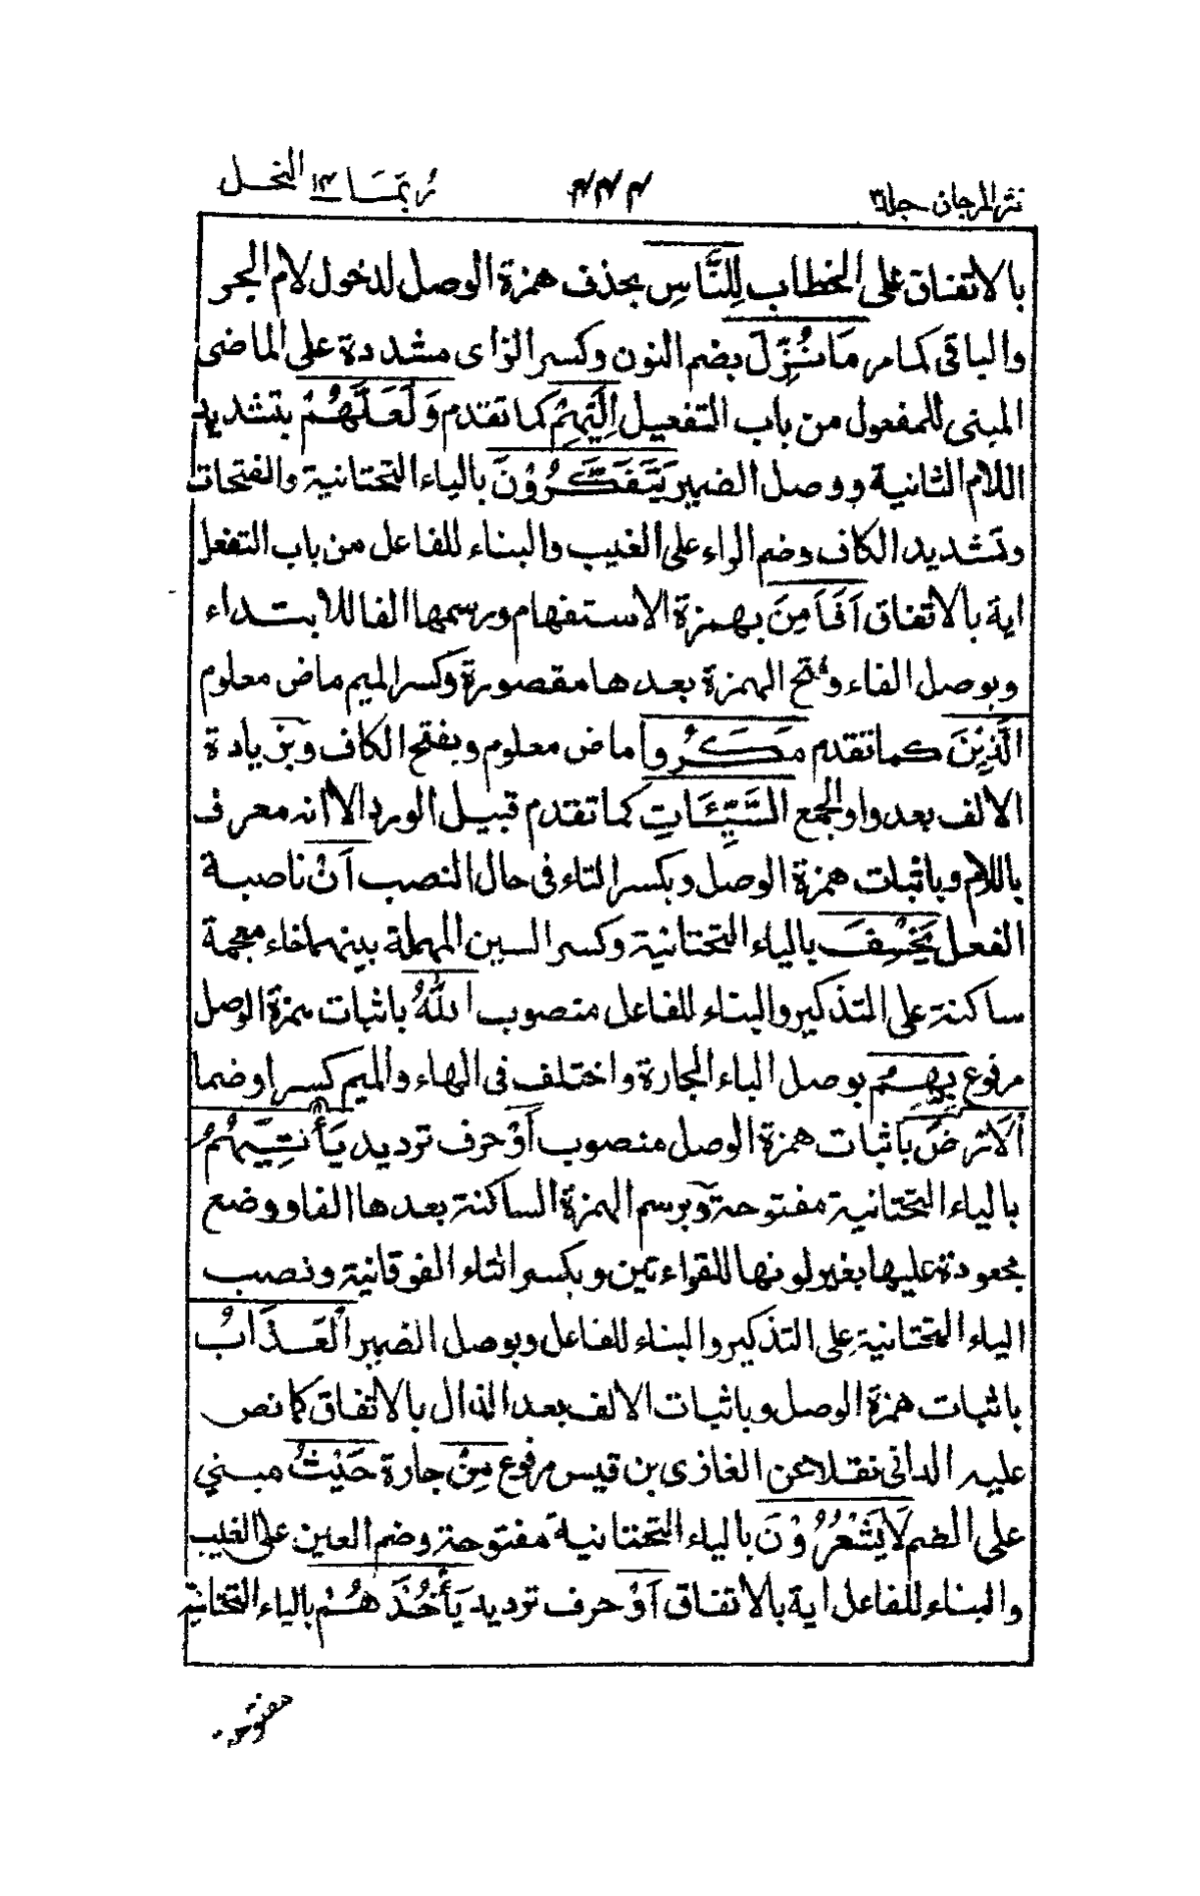 نثر المرجان جلد٣ ٤٤٤ ربما ١٤ النحل
بالاتفاق على الخطاب لِلنَّاسِ بحذف همزة الوصل لدخول لام الجر
والباقى كمامر مَانُزِّلَ بضم النون وكسر الزاى مشددة على الماضى
المبنى للمفعول من باب التفعيل اِلَيْهِمْ كما تقدم وَلَعَلَّهُمْ بتشديد
اللام الثانية ووصل الضمير يَتَفَكَّرُوْنَ بالياء التحتانية والفتحات
وتشديد الكاف وضم الراء على الغيب والبناء للفاعل من باب التفعل
اية بالاتفاق اَفَاَمِنَ بهمزة الاستفهام ورسمها الفا للابتداء
وبوصل الفاء وفتح الهمزة بعدها مقصورة وكسر الميم ماض معلوم
الَّذِيْنَ كما تقدم مَكَرُوا ماض معلوم وبفتح الكاف وبزيادة
الالف بعد واو الجمع السَّيِّئَاتِ كما تقدم قبيل الورد الا انه معرف
باللام وباثبات همزة الوصل وبكسر التاء فى حال النصب اَنْ ناصبة
الفعل يَخْسِفَ بالياء التحتانية وكسر السين المهملة بينهما خاء معجمة
ساكنة على التذكير والبناء للفاعل منصوب اللهُ باثبات همزة الوصل
مرفوع بِهِمْ بوصل الباء الجارة واختلف فى الهاء والميم كسرا وضما
اَلْاَرْضَ باثبات همزة الوصل منصوب اَوْ حرف ترديد يَأْتِيَهُمُ
بالياء التحتانية مفتوحة وبرسم الهمزة الساكنة بعدها الفا ووضع
مجعودة عليها بغير لونها للقراءتين وبكسر التاء الفوقانية ونصب
الياء التحتانية على التذكير والبناء للفاعل وبوصل الضمير الْعَذَابُ
باثبات همزة الوصل وباثبات الالف بعد الذال بالاتفاق كما نص
عليه الدانى نقلا عن الغازى بن قيس مرفوع مِنْ جارة حَيْثُ مبني
على الضم لَايَشْعُرُوْنَ بالياء التحتانية مفتوحة وضم العين على الغيب
والبناء للفاعل اية بالاتفاق اَوْ حرف ترديد يَأْخُذَهُمْ بالياء التحتانية
مفتوحة